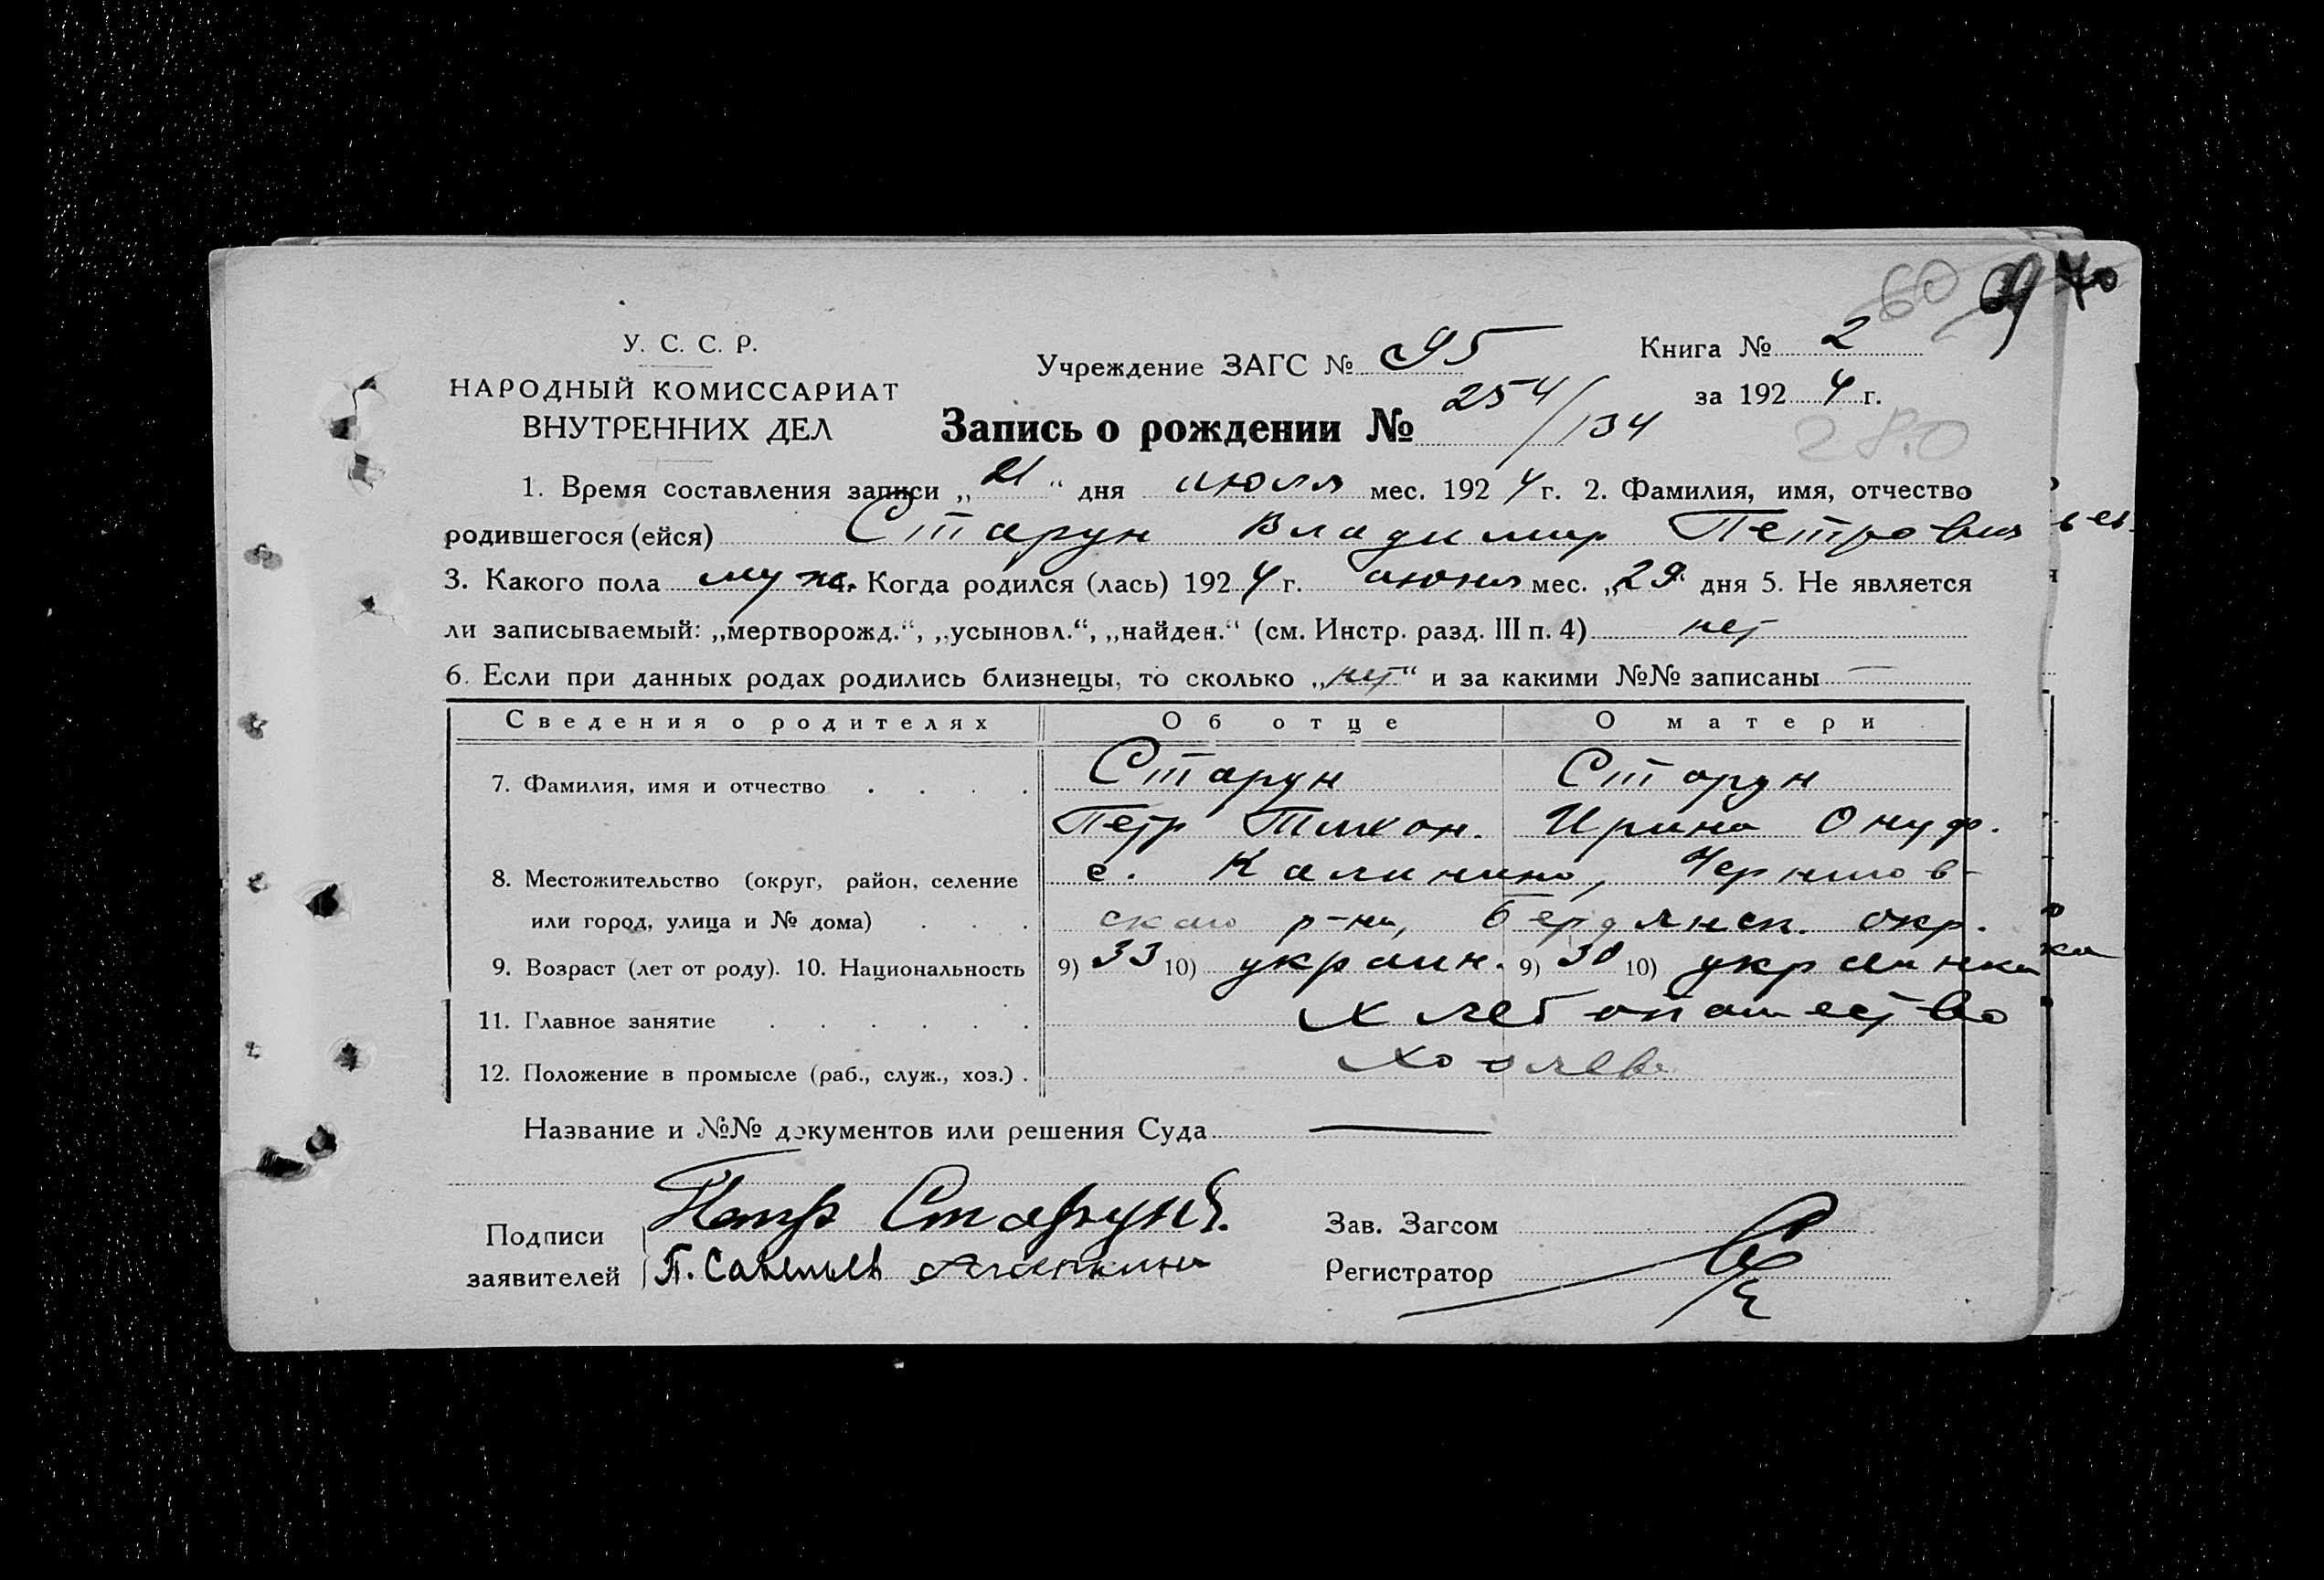 60 69 70
У. С. С. Р.
НАРОДНЫЙ КОМИССАРИАТ
ВНУТРЕННИХ ДЕЛ
Учреждение ЗАГС № 95
Книга № 2
за 1924 г.
Запись о рождении № 254/134
280
1. Время составления записи „21“ дня июля мес. 1924 г. 2. Фамилия, имя, отчество
родившегося (ейся) Старун Владимир Петрович
3. Какого пола муж. 4. Когда родился (лась) 1924 г. июня мес. „29“ дня 5. Не является
ли записываемый: „мертворожд.“, „усыновл.“, „найден.“ (см. Инстр. разд. III п. 4) нет
6. Если при данных родах родились близнецы, то сколько „нет“ и за какими №№ записаны —
Сведения о родителях Об отце О матери
7. Фамилия, имя и отчество Старун Старун
Петр Тихон. Ирина Онуф.
8. Местожительство (округ, район, селение с. Калинино, Черниговв-
или город, улица и № дома) ского р-на, Бердянск. окр.
9. Возраст (лет от роду). 10. Национальность 9) 33 10) украин. 9) 30 10) украинка
11. Главное занятие хлебопашество
12. Положение в промысле (раб., служ., хоз.) хозяева
Название и №№ документов или решения Суда —
Подписи Петр Старунъ.
заявителей П. Савельев
Зав. Загсом
Регистратор